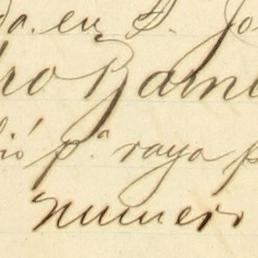 da. en S. Jo
ro Rami
ió p.ª raya p
numero